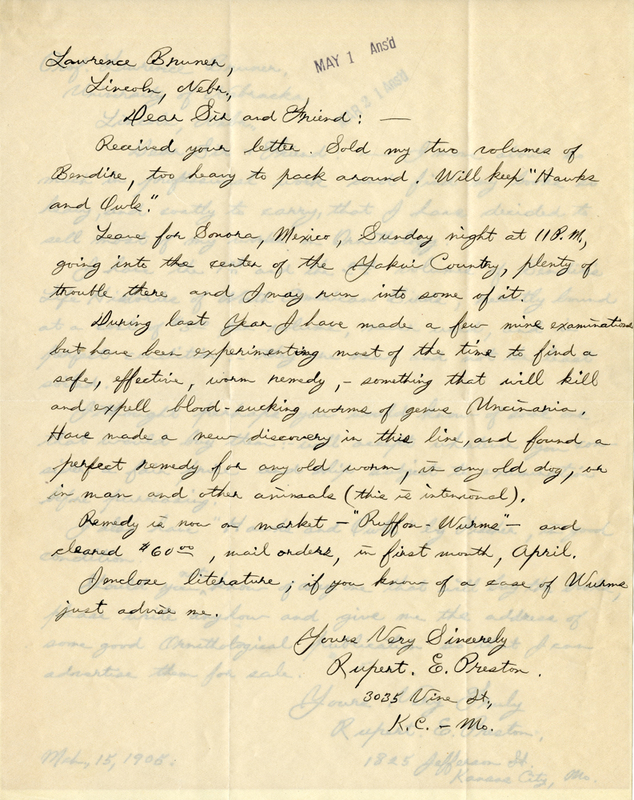 MAY 1 Ans'd
21 Ans'd
Lawrence Bruner,
Lincoln, Nebr.,
Dear Sir and Friend: —
Received your letter. Sold my two volumes of
Bendire, too heavy to pack around. Will keep "Hawks
and Owls."
Leave for Sonora, Mexico, Sunday night at 11 P.M.,
going into the center of the Yakui Country, plenty of
trouble there and I may run into some of it.
During last Year I have made a few mine examinations
but have been experimenting most of the time to find a
safe, effective, worm remedy, - something that will kill
and expell blood-sucking worms of genus Uncinaria.
Have made a new discovery in this line, and found a
perfect remedy for any old worm, in any old dog, or
in man and other animals (this is intensional).
Remedy is now on market - "Ruffon-Wurms" - and
cleared $60 00, mail orders, in first month, April.
I enclose literature; if you know of a case of Wurms
just advise me.
Yours Very Sincerely
Rupert. E. Preston.
3035 Vine St.,
K.C. - Mo.
to carry, that I have decided to
sell
and give me the address of
some good Ornithological
advertise them for sale.
Yours Truly
Rupert E. Preston,
1825 Jefferson St.
Kansas City, Mo.
Mch, 15, 1905.